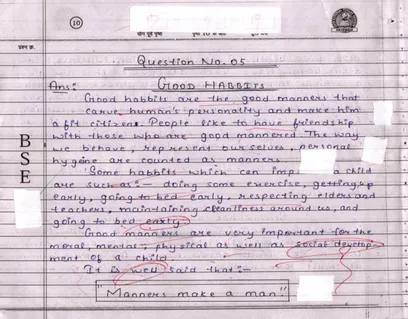 10
प्रश्न क्र.
Question No. 05
Ans:- GOOD HABBITS
Good habbits are the good manners that
carve human's personality and make him
a fit citizen. People like to have friendship
with those who are good mannered. The way
we behave, represent our selves, personal
hygene are counted as manners.
Some habbits which can a child
are such as:- doing some exercise, getting up
early, going to bed early, respecting elders and
teachers, maintaining cleanliness around us, and
going to bed early.
Good manners are very important for the
moral, mental, physical as well as social develop-
ment of a child.
It is well said that:-
"Manners make a man."
BSE